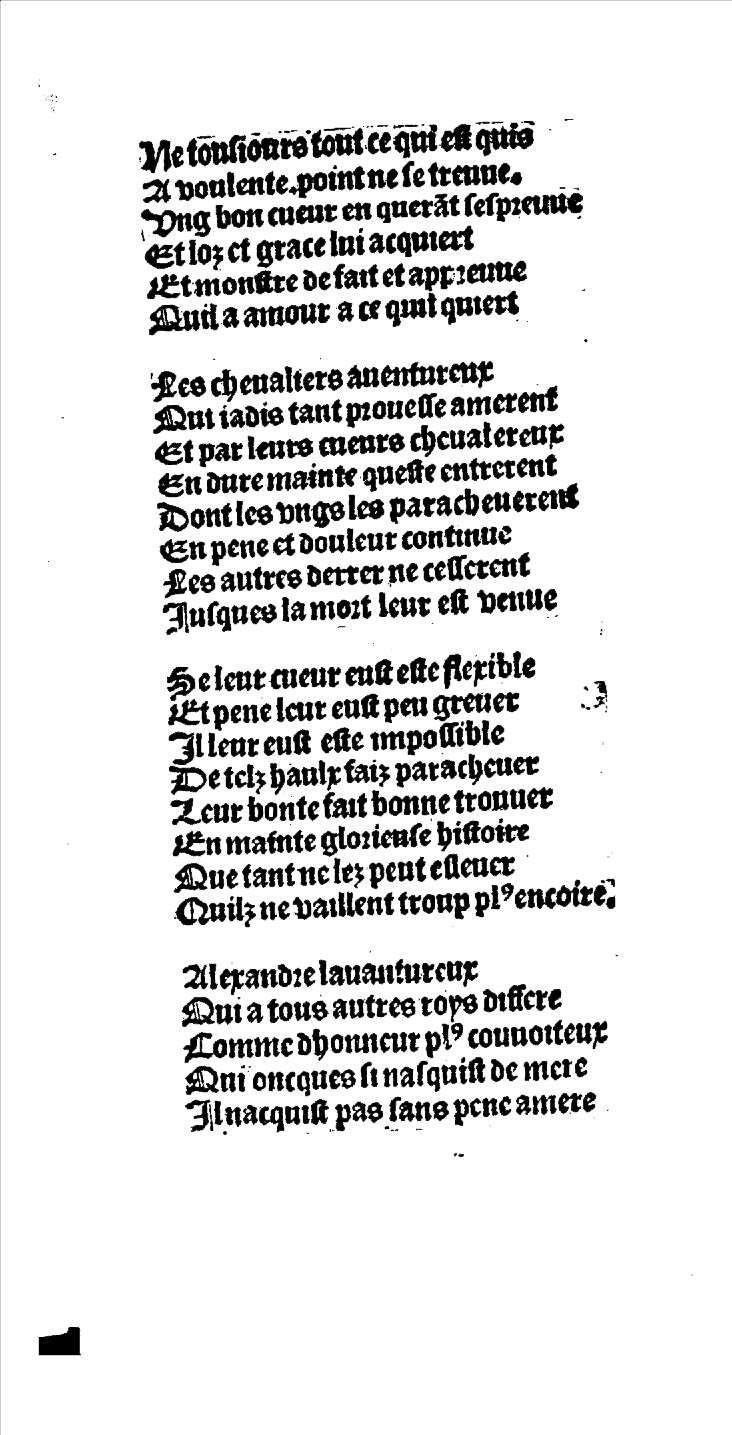 Ne touſiours tout ce qui eſt quis
A voulente.point ne ſe treuue.
Vng bon cueur en querãt ſeſpreuue
Et loz et grace lui acquiert
Et monſtre de fait et appreuue
Quil a amour a ce quil quiert
Les cheualiers auentureux
Qui iadis tant proueſſe amerent
Et par leurs cueurs cheualereux
En dure mainte queſte entrerent
Dont les vngs les paracheuerent
En pene et douleur continue
Les autres derrer ne ceſſerent
Juſques la mort leur eſt venue
Se leur cueur euſt eſte flexible
Et pene leur euſt peu greuer
Il leur euſt eſte impoſſible
De telz haulx faiz paracheuer
Leur bonte fait bonne trouuer
En mainte glorieuſe hiſtoire
Que tant ne lez peut eſleuer
Quilz ne vaillent troup plꝰ encoire.
Alexandre lauantureux
Qui a tous autres roys differe
Comme dhonneur plꝰ couuoiteux
Qui oncques ſi naſquiſt de mere
Il nacquiſt pas ſans pene amere